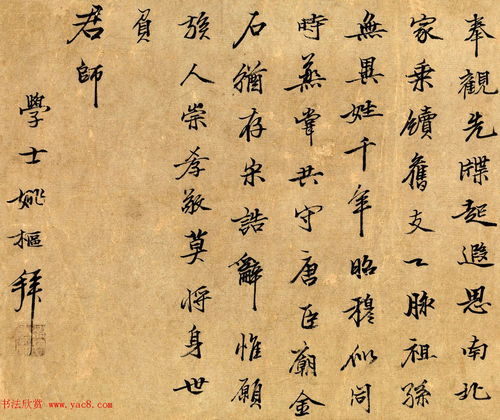 奉觀先牒起遐思南北
家乘續舊支一脉祖孫
無異姓千年昭穆似同
時蒸嘗共守唐臣廟金
石猶存宋誥辭惟願
族人崇孝敬莫將身世
負
君師
學士姚樞拜
书法欣赏 www.yac8.com